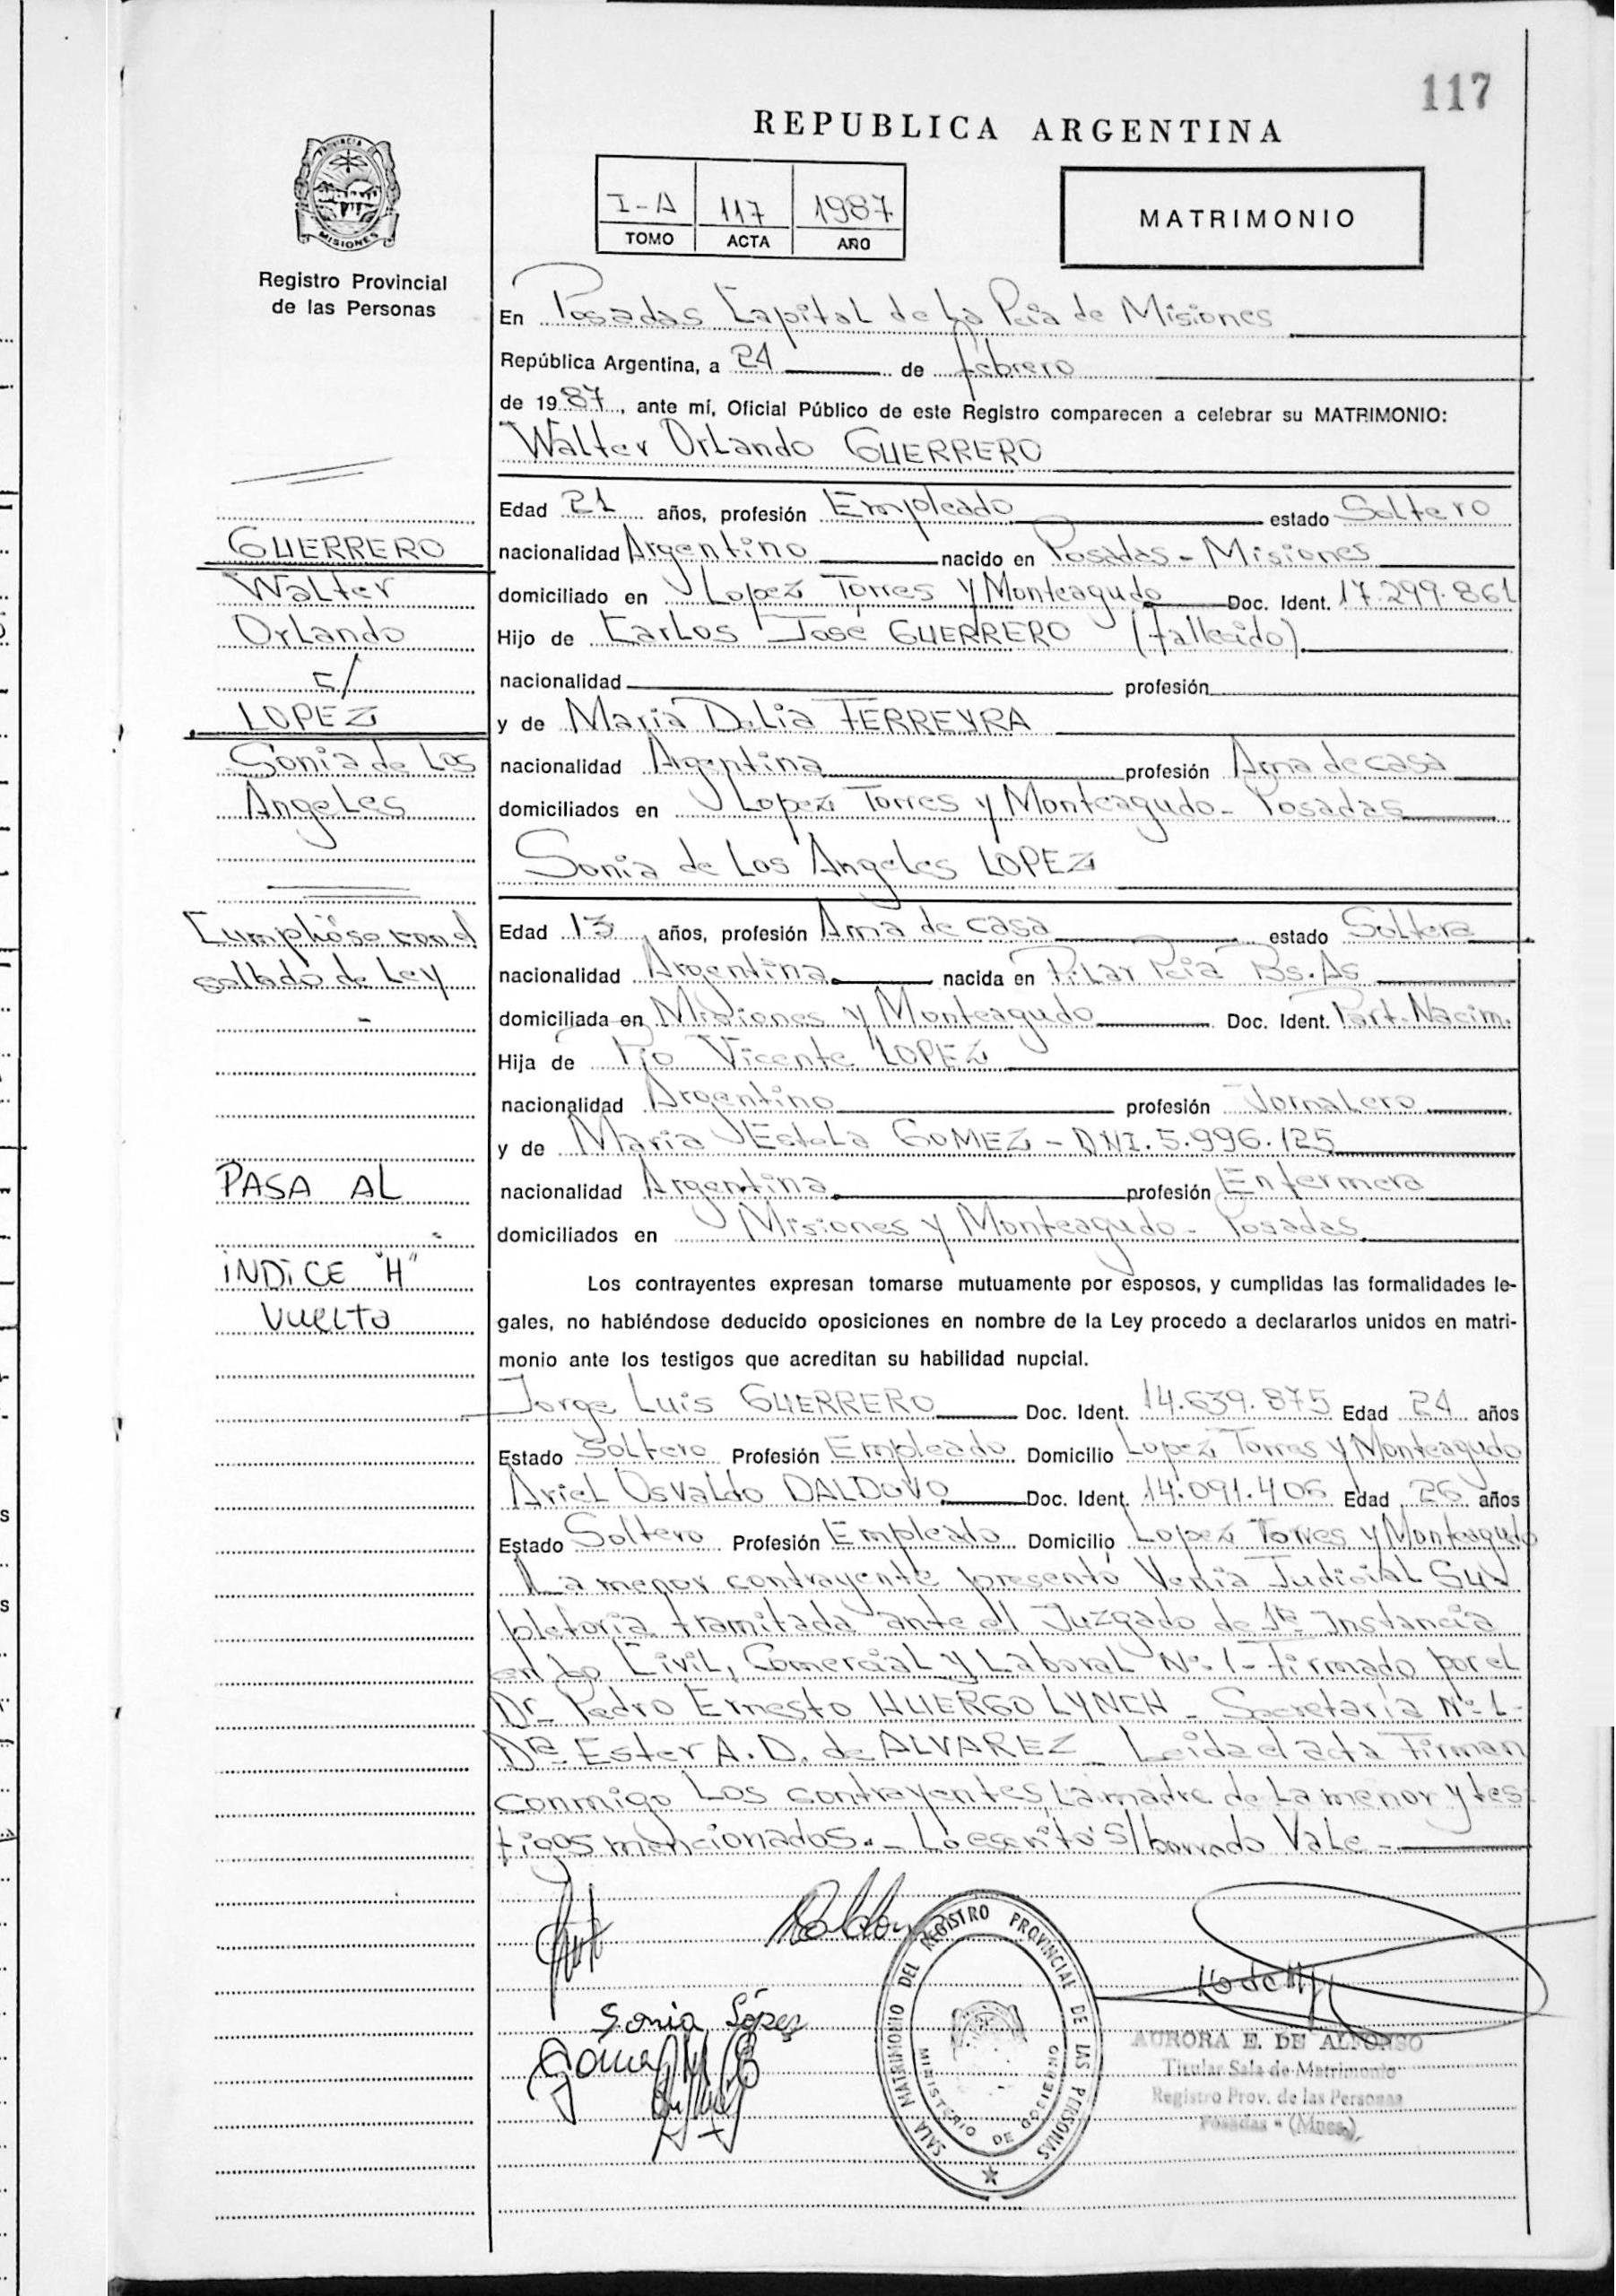 117
REPUBLICA ARGENTINA
I-A 117 1987
TOMO ACTA AÑO
MATRIMONIO
PROVINCIA DE
MISIONES
Registro Provincial
de las Personas
En Posadas Capital de La Pcia de Misiones
República Argentina, a 24 de febrero
de 1987, ante mí, Oficial Público de este Registro comparecen a celebrar su MATRIMONIO:
Walter Orlando GUERRERO
Edad 21 años, profesión Empleado estado Soltero
nacionalidad Argentino nacido en Posadas - Misiones
domiciliado en Lopez Torres y Monteagudo Doc. Ident. 17.299.861
Hijo de Carlos José GUERRERO (fallecido).
nacionalidad profesión
y de Maria Delia FERREYRA
nacionalidad Argentina profesión Ama de casa
domiciliados en Lopez Torres y Monteagudo - Posadas
Sonia de Los Angeles LOPEZ
Edad 13 años, profesión Ama de casa estado Soltera
nacionalidad Argentina nacida en Pilar Pcia Bs. As
domiciliada en Misiones y Monteagudo Doc. Ident. Part. Nacim.
Hija de Pio Vicente LOPEZ
nacionalidad Argentino profesión Jornalero
y de Maria Estela GOMEZ - DNI. 5.996.125
nacionalidad Argentina profesión Enfermera
domiciliados en Misiones y Monteagudo - Posadas
Los contrayentes expresan tomarse mutuamente por esposos, y cumplidas las formalidades le-
gales, no habiéndose deducido oposiciones en nombre de la Ley procedo a declararlos unidos en matri-
monio ante los testigos que acreditan su habilidad nupcial.
Jorge Luis GUERRERO Doc. Ident. 14.639.875 Edad 24 años
Estado Soltero Profesión Empleado Domicilio Lopez Torres y Monteagudo
Ariel Osvaldo Doc. Ident. 14.091.406 Edad 26 años
Estado Soltero Profesión Empleado Domicilio Lopez Torres y Monteagudo
La menor contrayente presentó Venia Judicial Su
pletoria tramitada ante el Juzgado de 1ra Instancia
en Lo Civil, Comercial y Laboral Nº 1 - Firmado por el
Dr. Pedro Ernesto HUERGO LYNCH - Secretaría Nº 1 -
Dra. Ester A. D. de ALVAREZ - Leida el acta Firman
conmigo Los contrayentes, La madre de La menor y tes
tigos mencionados. - Lo escrito s/borrado Vale -
GUERRERO
Walter
Orlando
c/
LOPEZ
Sonia de Los
Angeles
Cumplióse con el
sellado de Ley
PASA AL
INDICE "H"
Vuelta
Sonia López
SALA MATRIMONIO DEL REGISTRO PROVINCIAL DE LAS PERSONAS
MINISTERIO DE GOBIERNO
AURORA E. DE ALFONSO
Titular Sala de Matrimonio
Registro Prov. de las Personas
Posadas - (Mnes)